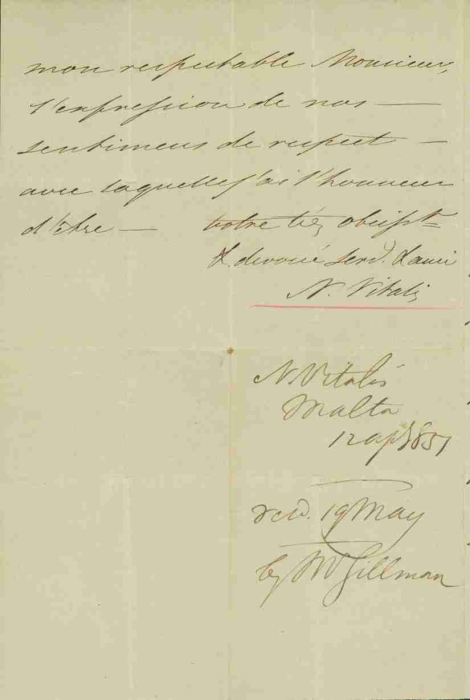 mon respectable Monsieur,
l'expression de nos —
sentimens de respect —
avec laquelle j'ai l'honneur
d'etre — votre très obeisst
& devoué serv. & ami
N. Vitalis
N. Vitalis
Malta
12 apl 1851
recd. 19 May
by Mr Gillman